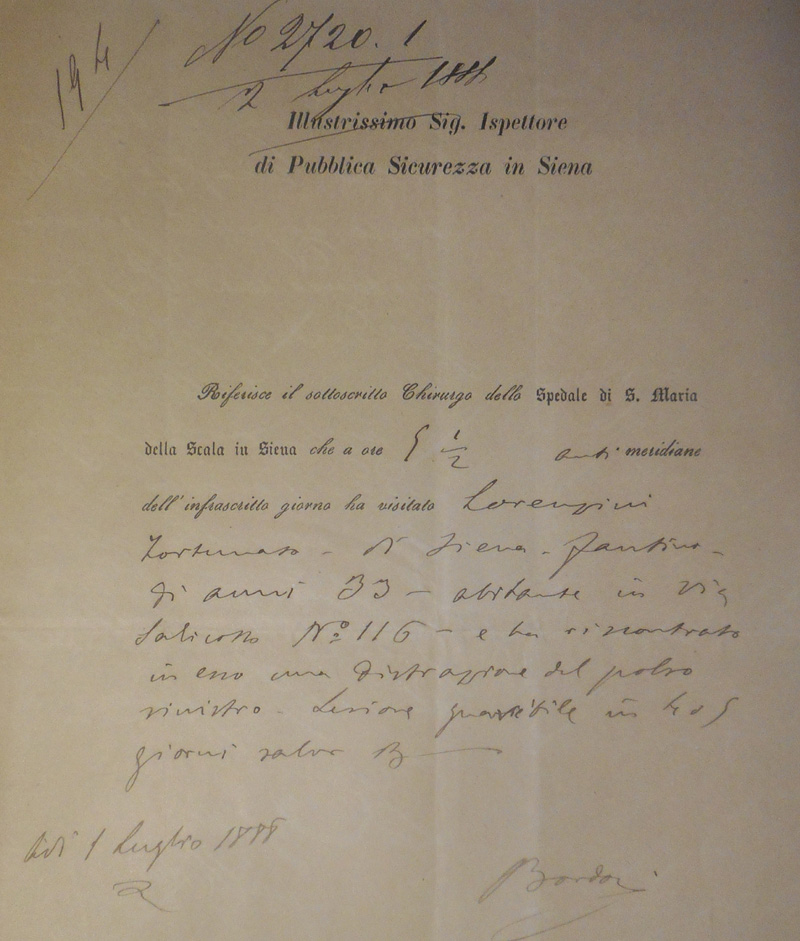 194
No 2720. 1
2 Luglio 1888
Illustrissimo Sig. Ispettore
di Pubblica Sicurezza in Siena
Riferisce il sottoscritto Chirurgo dello Spedale di S. Maria
della Scala in Siena che a ore 5 1/2 anti meridiane
dell'infrascritto giorno ha visitato Lorenzini
Fortunato - di Siena - fantino -
di anni 33 - abitante in Via
Salicotto No 116 - e ha riscontrato
in esso una distrazione del polso
sinistro - Lesione guaribile in 4 o 5
giorni salvo
Adì 1 Luglio 1888
2